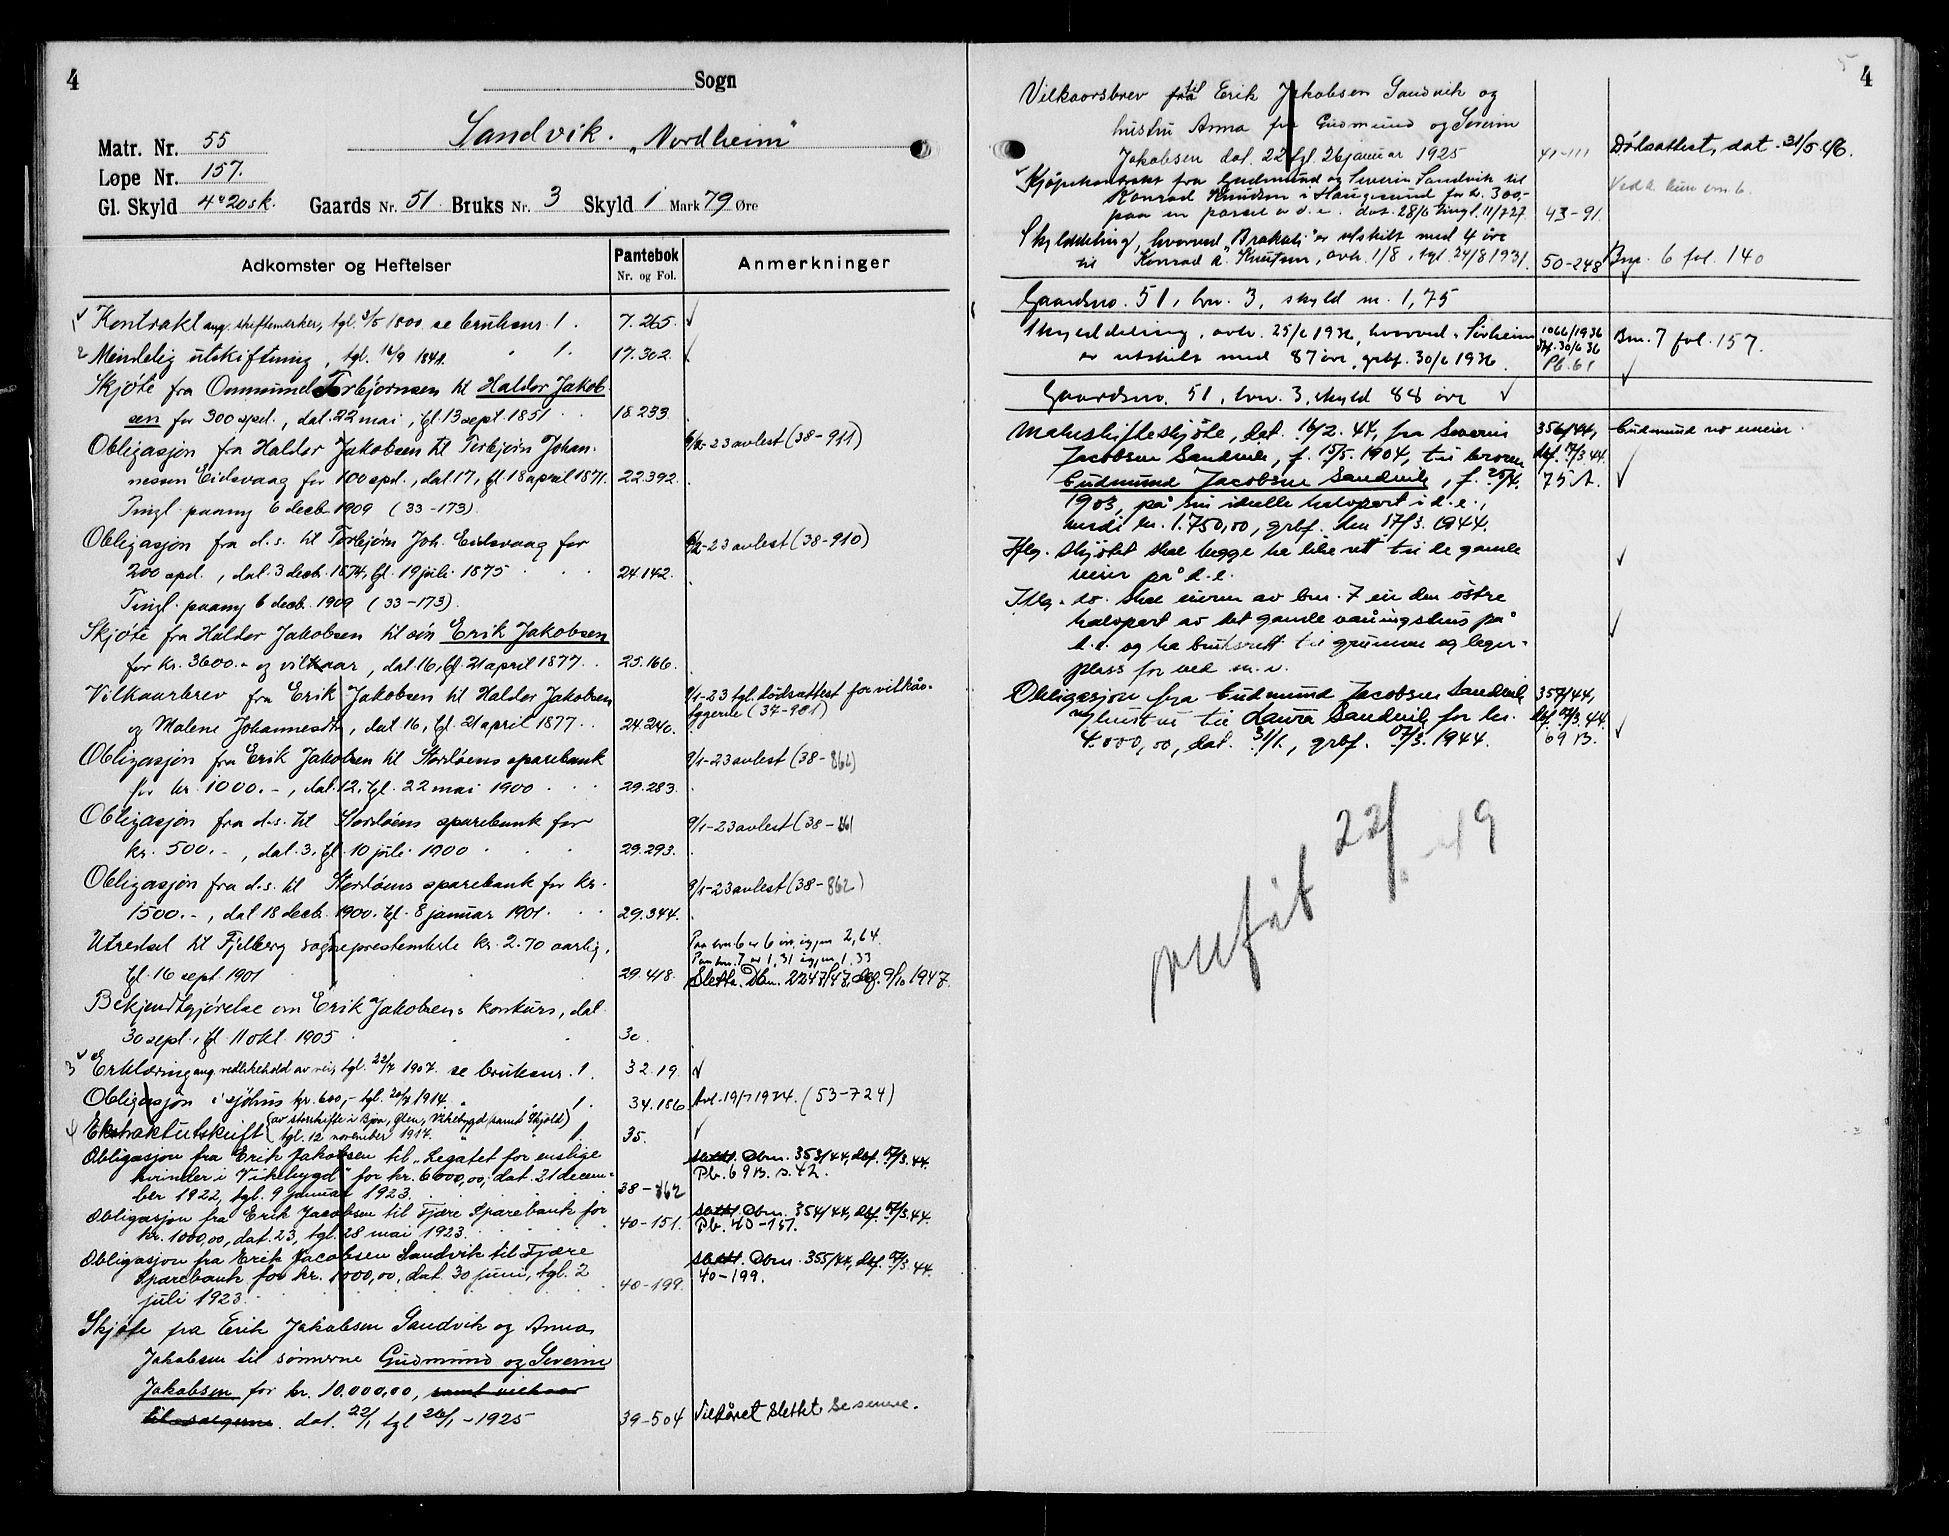 4
Sogn
Sandvik. "Nordheim"
Matr. Nr. 55
Løpe Nr. 157.
Gl. Skyld
Gaards Nr. 51 Bruks Nr. 3 Skyld 1 Mark 79 Øre
Adkomster og Heftelser
Pantebok
Nr. og Fol.
Anmerkninger
Kontrakt ang. skiftemerker, tgl. 1800 se bruksnr. 1. 7.265.
Mindelig utskiftning, tgl. 16/9 1841. " 1. 17.302.
Skjøte fra Ommund Torbjørnsen til Haldor Jakob-
sen for 300 spd., dat. 22 mai, tgl. 13 sept. 1851 18.233.
Obligasjon fra Haldor Jakobsen til Torbjørn Johan- -23 avlest (38-911)
nessen Eidsvaag for 100 spd., dat. 17, tgl. 18 april 1871. 22.392.
Tingl. paany 6 decb. 1909 (33-173).
Obligasjon fra d.s. til Torbjørn Joh. Eidsvaag for -23 avlest (38-910)
200 spd., dat. 3 decb. 1874, tgl. 19 juli 1875 24.142.
Tingl. paany 6 decb. 1909 (33-173).
Skjøte fra Haldor Jakobsen til søn Erik Jakobsen
for kr. 3600.- og vilkaar, dat. 16, tgl. 21 april 1877. 25.166.
Vilkaarbrev fra Erik Jakobsen til Haldor Jakobsen 9/1-23 tgl. dødsattest for vilkår-
og Malene Johannesdtr, dat 16, tgl. 21 april 1877. 24.240. tygerne (37-981)
Obligasjon fra Erik Jakobsen til Stordøens sparebank 9/1-23 avlest (38-862)
for kr. 1000.-, dat. 12, tgl. 22 mai 1900 29.283.
Obligasjon fra d.s. til Stordøens sparebank for 9/1-23 avlest (38-861
kr. 500.-, dat. 3, tgl. 10 juli 1900 29.293.
Obligasjon fra d.s. til Stordøens sparebank for kr. 9/1-23 avlest (38-862)
1500.-, dat 18 decb. 1900, tgl. 8 januar 1901. 29.344.
Utredsel til Fjelberg sogneprestembede kr. 2.70 aarlig, Paa bnr. 6 er 6 øre, igjen 2,64.
Paa bnr. 7 er 1,31 igjen 1.33
tgl. 16 sept. 1901 29.418. Slettn. Dbn. 2247/47, def. 9/10 1947.
Bekjendtgjørelse om Erik Jakobsens konkurs, dat.
30 sept., tgl. 11 okt. 1905 30.
3 Erklæring ang. vedlikehold av vei, tgl. 22/7 1907. se bruksnr. 1. 32.19.
Obligasjon i sjøhus kr. 600,- tgl. 20/7 1914. " 1. 34.186 Avl. 19/7 1934. (53-724)
4 Ekstraktutskrift (av storskifte i Bjoa, Ølen, Vikebygd samt Skjold)
tgl. 12 november 1917. " 1 35.
Obligasjon fra Erik Jakobsen til "Legatet for enslige Dbn. 353/44, def. 17/3.44.
kvinder i Vikebygd" for kr. 6000,00, dat. 21 decem- Pb. 69 B. s. 42.
ber 1922, tgl. 9 januar 1923. 38-862
Obligasjon fra Erik Jacobsen til Fjære Sparebank for Dbn. 354/44, def. 17/3.44.
kr. 1000,00, dat. 23, tgl. 28 mai 1923. 40-151. Pb. 40-151.
Obligasjon fra Erik Jacobsen Sandvik til Fjære Dbn. 355/44, def. 17/3.44.
Sparebank for kr. 1000,00, dat. 30 juni, tgl. 2 40-199.
juli 1923. 40-199.
Skjøte fra Erik Jakobsen Sandvik og Anna
Jakobsen til sønnerne Gudmund og Severin
Jakobsen for kr. 10.000,00, samt vilkaar
til sælgerne. dat. 22/1 tgl 26/1-1925 39-504 Vilkåret slettet se senere.
4
Vilkaarsbrev fra til Erik Jakobsen Sandvik og
hustru Anna fra Gudmund og Severin
Jakobsen dat. 22 tgl. 26 januar 1925 41-111 Dødsattest, dat. 31/5.46.
Kjøpekontrakt fra Gudmund og Severin Sandvik til
Konrad Knudsen i Haugesund for kr. 300,-
paa en parsel av d.e. dat. 28/6 tingl. 11/7 27 43-91.
Skylddeling, hvorved "Brakali" er utskilt med 4 øre
til Konrad A. Knutsen, avh. 1/8, tgl. 24/8 1931. 50-248 Bnr. 6 fol. 140
Gaardsno. 51, bnr. 3, skyld m. 1,75
Skylddeling, avh. 25/6 1936, hvorved "Sørheim" 1066/1936 Bnr. 7 fol. 157.
def. 30/6 36
er utskilt med 87 øre, grbf. 30/6 1936. Pb. 61
Gaardsno. 51, bnr. 3, skyld 88 øre
Makeskifteskjøte, dat. 16/2. 44, fra Severin 356/44, Gudmund no eneeier.
Jacobsen Sandvik, f. 15/5. 1904, til broren def. 17/3 44.
Gudmund Jacobsen Sandvik, f. 25/4. 75 A.
1903, på sin ideelle halvpart i d.e.,
verdi kr. 1.750,00, grbf. den 17/3. 1944.
Iflg. skjøtet skal begge ha like rett til de gamle
veier på d.e.
Iflg. do. skal eieren av bnr. 7 eie den østre
halvpart av det gamle våningshus på
d.e. og ha bruksrett til grunnen og lager-
plass for ved m.v.
Obligasjon fra Gudmund Jacobsen Sandvik 357/44,
m/hustru til Laura Sandvik for kr. def. 17/3. 44.
4.000,00, dat. 31/1., grbf. 17/3. 1944. 69 B.
22/ - 49